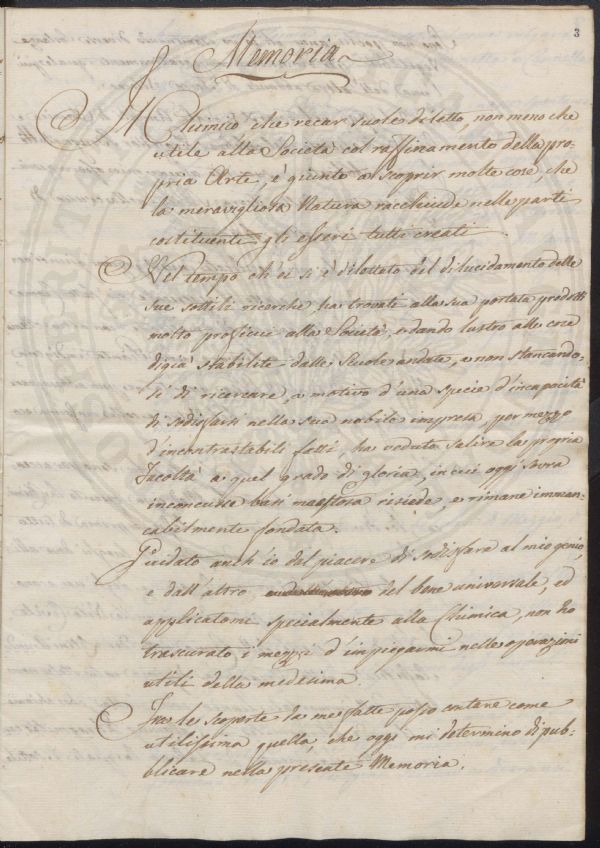 3
Memoria
Il Chimico che recar suole diletto, non meno che
utile alla Società col raffinamento della pro-
pria Arte, è giunto a scoprir molte cose, che
la meravigliosa Natura racchiude nelle parti
costituenti gli esseri tutti creati.
Nel tempo ch'ei si è dilettato del dilucidamento delle
sue sottili ricerche, ha trovati alla sua portata prodotti
molto proficui alla Società, e dando lustro alle cose
digià stabilite dalle Scuole andate, e non stancando-
si di ricercare, a motivo d'una specie d'incapacità
di sodisfarsi nella sua nobile impresa, per mezzo
d'incontrastabili fatti, ha veduta salire la propria
Facoltà a quel grado di gloria, in cui oggi sovra
inconcusse basi maestosa risiede, e rimane imman-
cabilmente fondata.
Guidato anch'io dal piacere di sodisfare al mio genio,
e dall'altro, del bene universale, ed
applicatomi specialmente alla Chimica, non ho
trascurato i mezzi d'impiegarmi nelle operazioni
utili della medesima.
Fra le scoperte da me fatte posso contare come
utilissima quella, che oggi mi determino di pub-
blicare nella presente Memoria.